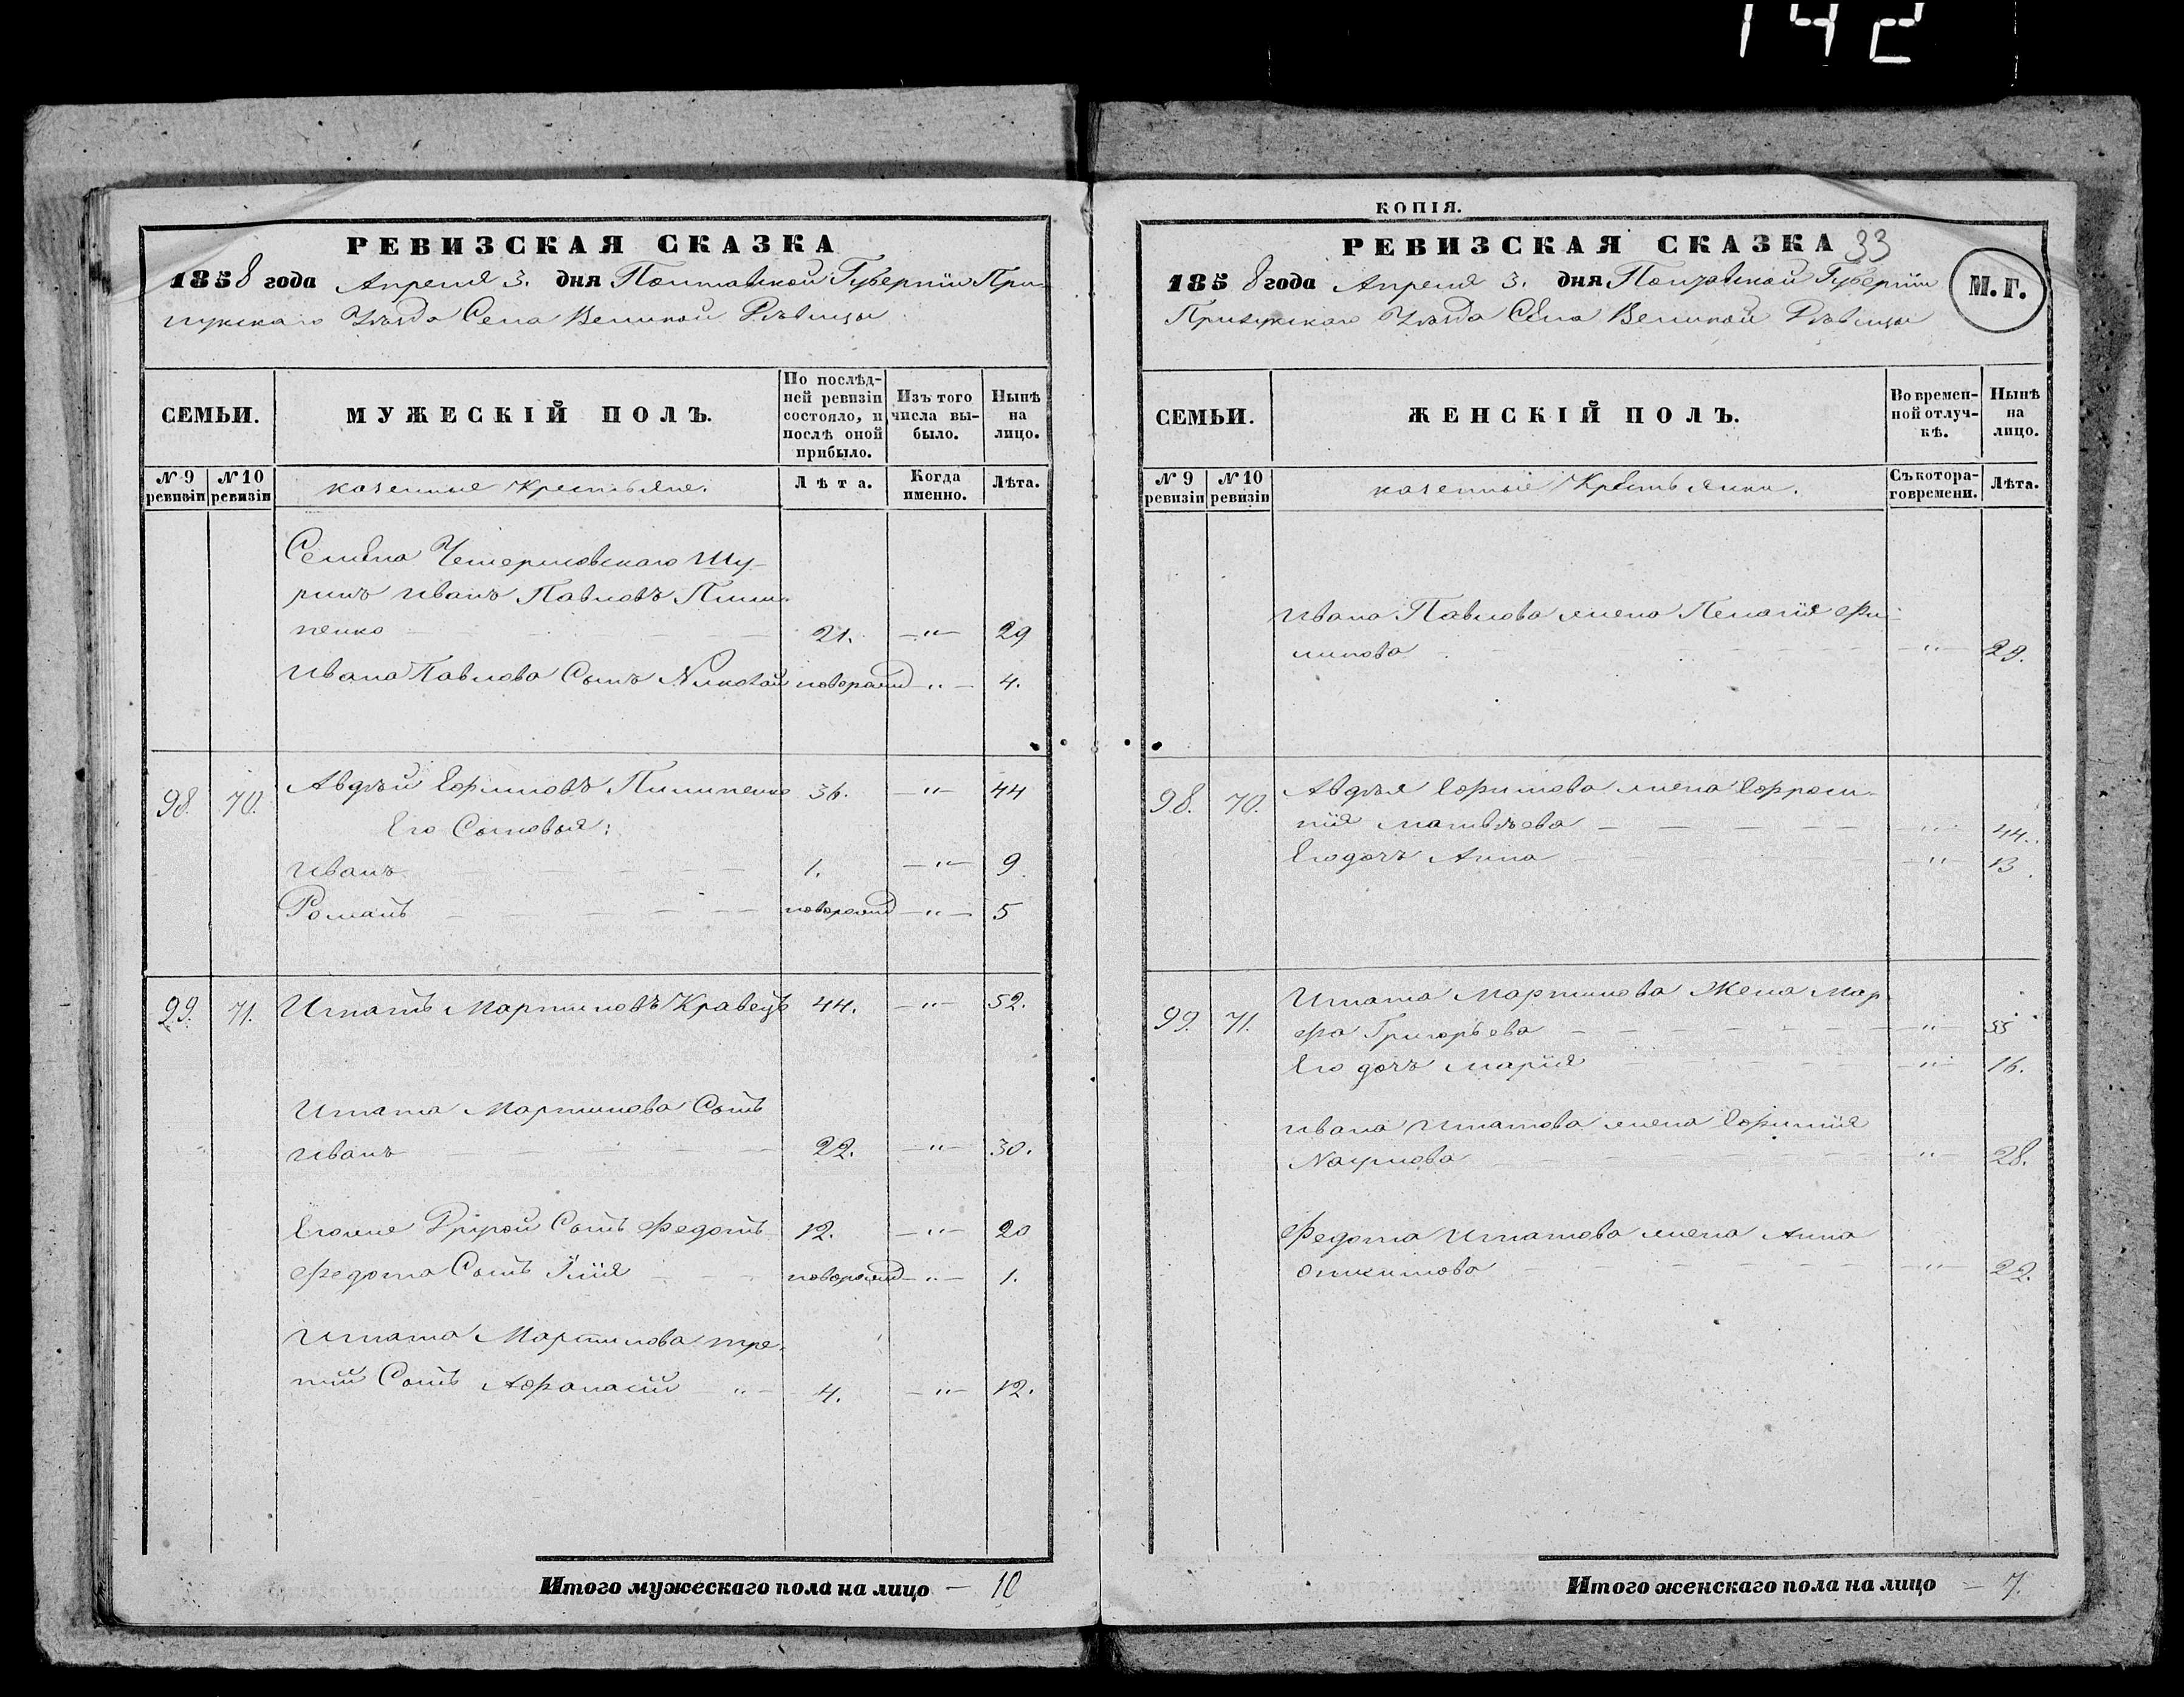 142
РЕВИЗСКАЯ СКАЗКА
1858 года Апреля 3. дня Полтавской Губерніи При-
лукскаго Уѣзда Села Великой Дѣвицы
СЕМЬИ.
МУЖЕСКІЙ ПОЛЪ.
По послѣд-
ней ревизіи
состояло, и
послѣ оной
прибыло.
Изъ того
числа вы-
было.
Нынѣ
на
лицо.
№ 9
ревизіи
№ 10
ревизіи
казенные Крестьяне.
Лѣта.
Когда
именно.
Лѣта.
Семена Чемерисовскаго Шу-
ринъ Иванъ Павловъ Пили-
пенко 21. —"— 29
Ивана Павлова Сынъ Николай новорожд —"— 4.
98. 70. Авдѣй Ефимовъ Пилипенко 36. —"— 44
Его Сыновья:
Иванъ 1. —"— 9
Романъ новорожд —"— 5
99. 71. Игнатъ Мартиновъ Кравецъ 44. —"— 52.
Игната Мартинова Сынъ
Иванъ 22. —"— 30.
Его же Другой Сынъ Федотъ 12. —"— 20
Федота Сынъ Илія новорожд —"— 1.
Игната Мартинова тре-
тій Сынъ Афанасій " 4. —"— 12.
Итого мужескаго пола на лицо — 10
КОПІЯ.
РЕВИЗСКАЯ СКАЗКА 33
1858 года Апреля 3. дня Полтавской Губерніи
Прилукскаго Уѣзда Села Великой Дѣвицы
М. Г.
СЕМЬИ.
ЖЕНСКІЙ ПОЛЪ.
Во времен-
ной отлуч-
кѣ.
Нынѣ
на
лицо.
№ 9
ревизіи
№ 10
ревизіи
казенные Крестьянки.
Съ котора-
го времени.
Лѣта.
Ивана Павлова жена Пелагія Фи-
липова —"— 29.
98. 70. Авдѣя Ефимова жена Ефроси-
нія Матвѣева —"— 44.
Его дочь Анна —"— 13
99. 71. Игната Мартинова Жена Мар-
фа Григорьева —"— 55
Его дочь Марія —"— 16.
Ивана Игнатова жена Ефимія
Наумова —"— 28.
Федота Игнатова жена Анна
—"— 22.
Итого женскаго пола на лицо — 7.